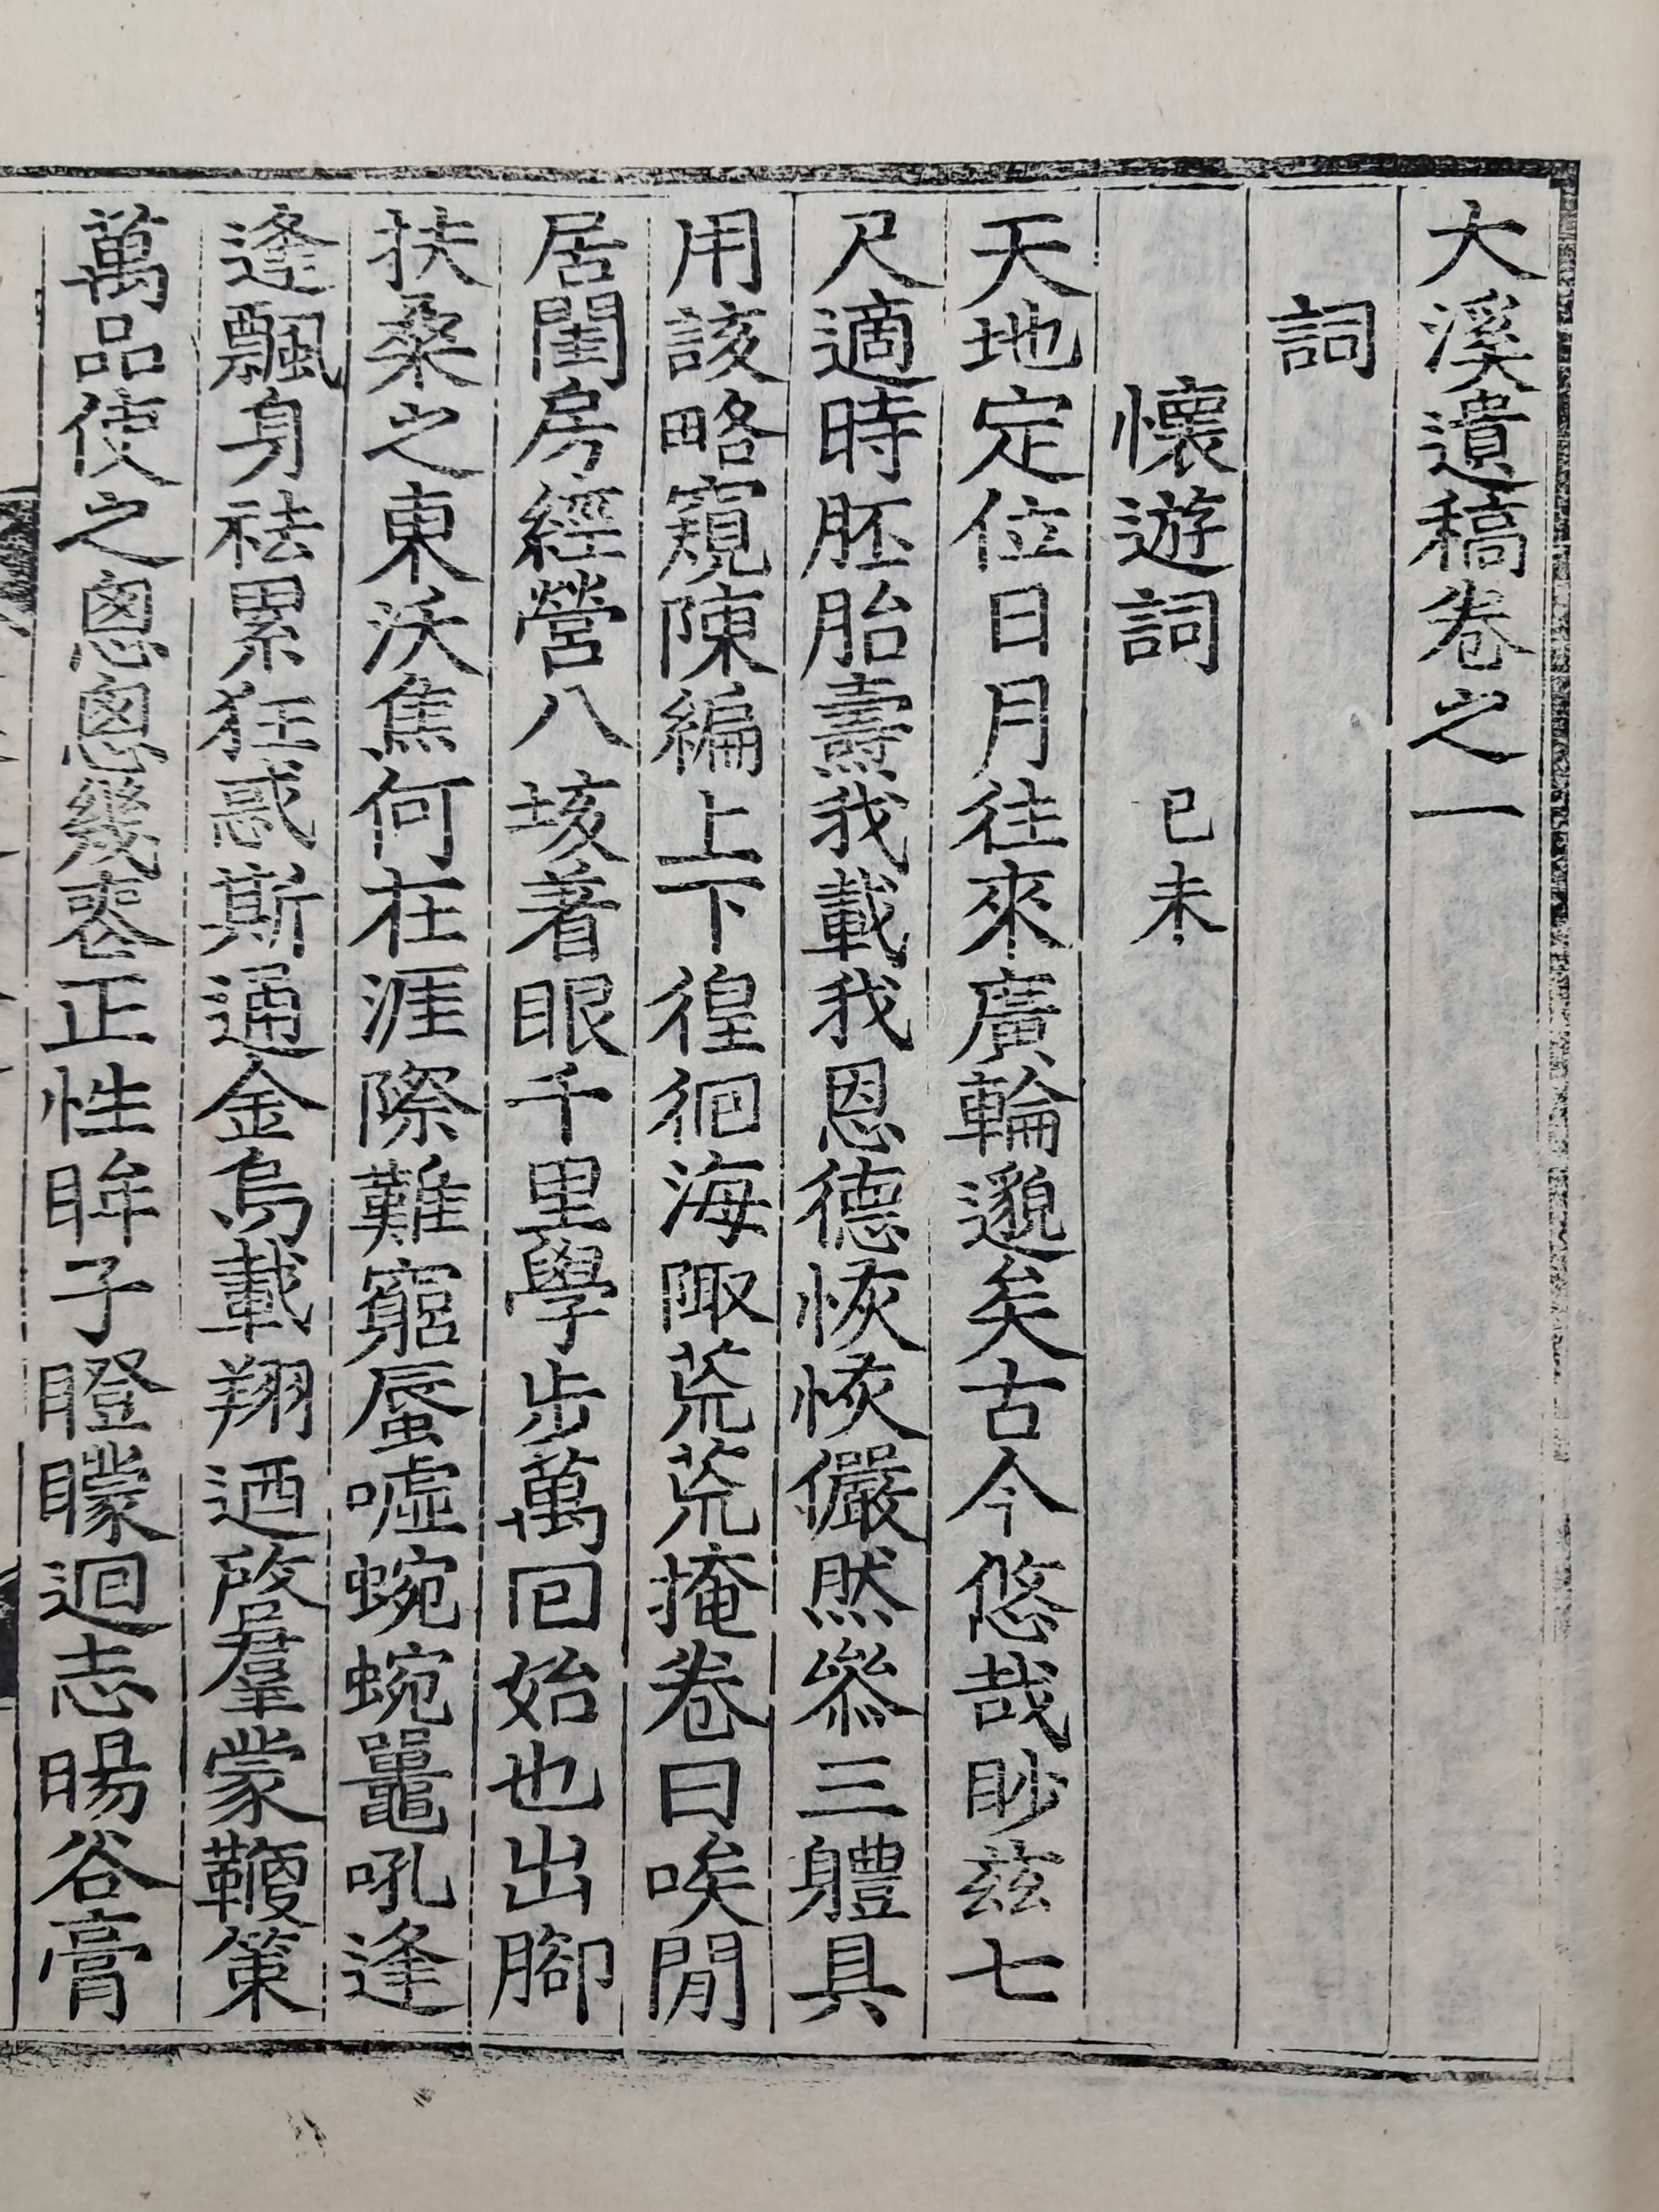 大溪遺稿卷之一
詞
懷遊詞 己未
天地定位日月往來廣輪邈矣古今悠哉眇玆七
尺適時胚胎燾我載我恩德恢恢儼然叅三軆具
用該略窺陳編上下徨徊海陬荒荒掩卷曰唉閒
居閨房經營八垓着眼千里學步萬回始也出腳
扶桑之東沃焦何在涯際難窮蜃噓蜿蜿鼉吼逢
逢飄身祛累狂惑斯通金烏載翔迺啓羣蒙鞭策
萬品使之悤悤幾喪正性眸子瞪矇迴志暘谷膏